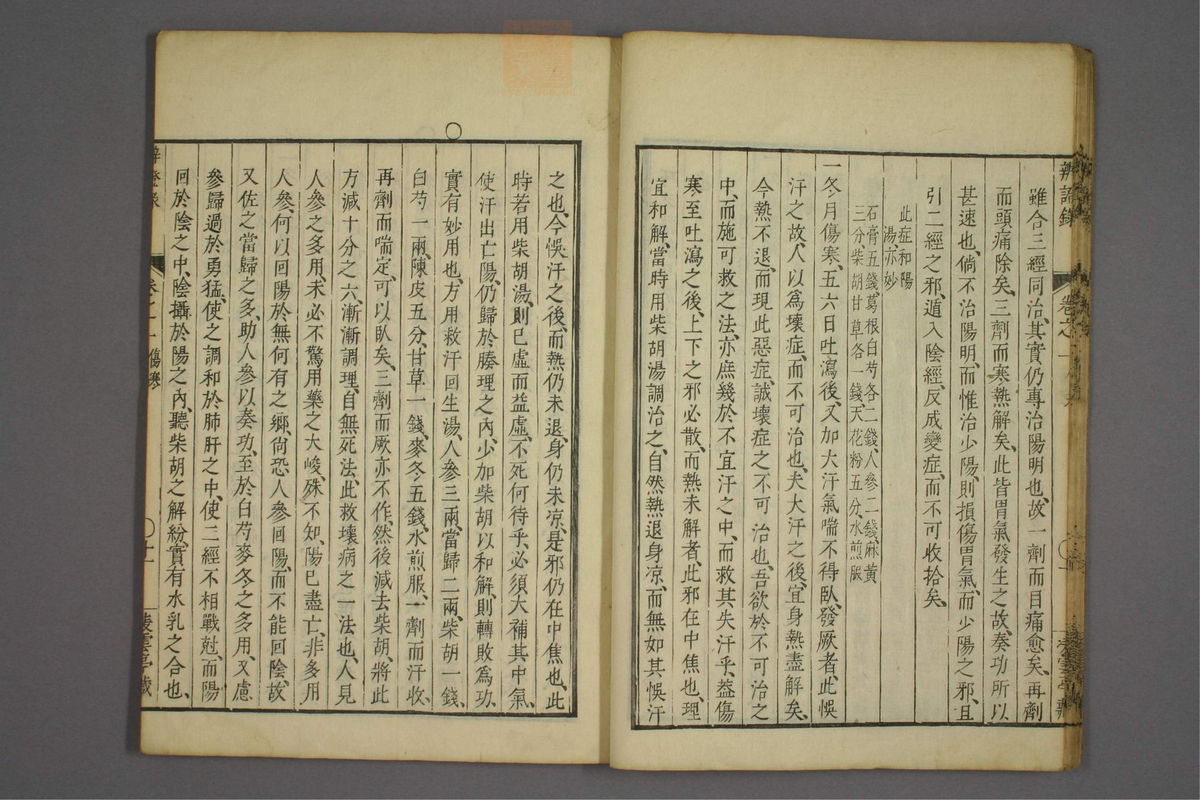 雖合三經同治、其實仍專治陽明也、故一劑而目痛愈矣、再劑
而頭痛除矣、三劑而寒熱解矣、此皆胃氣發生之故、奏功所以
甚速也、倘不治陽明、而惟治少陽、則損傷胃氣、而少陽之邪、且
引二經之邪、遁入陰經、反成變症、而不可收拾矣、
此症和陽
湯亦妙
石膏五錢葛根白芍各二錢、人參二錢麻黃
三分、柴胡甘草各一錢、天花粉五分、水煎服
一冬月傷寒、五六日吐瀉後、又加大汗氣喘不得臥、發厥者、此悞
汗之故、人以爲壞症、而不可治也、夫大汗之後、宜身熱盡解矣、
今熱不退、而現此惡症、誠壞症之不可治也、吾欲於不可治之
中、而施可救之法、亦庶幾於不宜汗之中、而救其失汗乎、葢傷
寒至吐瀉之後、上下之邪必散、而熱未解者、此邪在中焦也、理
宜和解、當時用柴胡湯調治之、自然熱退身凉、而無如其悞汗
之也、今悞汗之後、而熱仍未退、身仍未凉、是邪仍在中焦也、此
時若用柴胡湯、則已虛而益虛、不死何待乎、必須大補其中氣、
使汗出亡陽、仍歸於腠理之內、少加柴胡以和解、則轉敗爲功、
實有妙用也、方用救汗回生湯、人參三兩、當歸二兩、柴胡一錢、
白芍一兩、陳皮五分、甘草一錢、麥冬五錢、水煎服、一劑而汗收、
再劑而喘定、可以臥矣、三劑而厥亦不作、然後減去柴胡、將此
方減十分之六、漸漸調理、自無死法、此救壞病之一法也、人見
人參之多用、未必不驚用藥之大峻、殊不知、陽已盡亡、非多用
人參、何以回陽於無何有之鄉、尙恐人參回陽、而不能回陰、故
又佐之當歸之多、助人參以奏功、至於白芍麥冬之多用、又慮
參歸過於勇猛、使之調和於肺肝之中、使二經不相戰尅、而陽
回於陰之中、陰攝於陽之內、聽柴胡之解紛、實有水乳之合也、
卷之一 傷寒